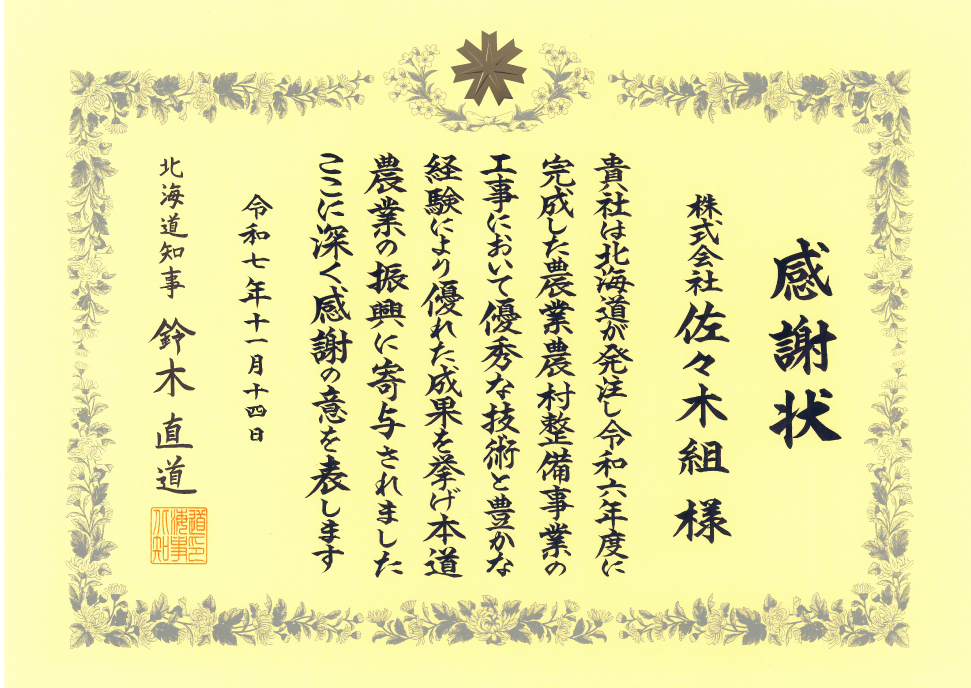 感謝状
株式会社 佐々木組 様
貴社は北海道が発注し令和六年度に
完成した農業農村整備事業の
工事において優秀な技術と豊かな
経験により優れた成果を挙げ本道
農業の振興に寄与されました
ここに深く感謝の意を表します
令和七年十一月十四日
北海道知事 鈴木直道